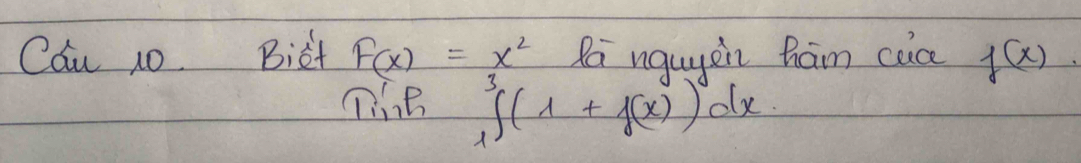 Câu 10. Biết F(x) = x² là nguyên hàm của f(x).
Tính ∫₁³(1 + f(x))dx.